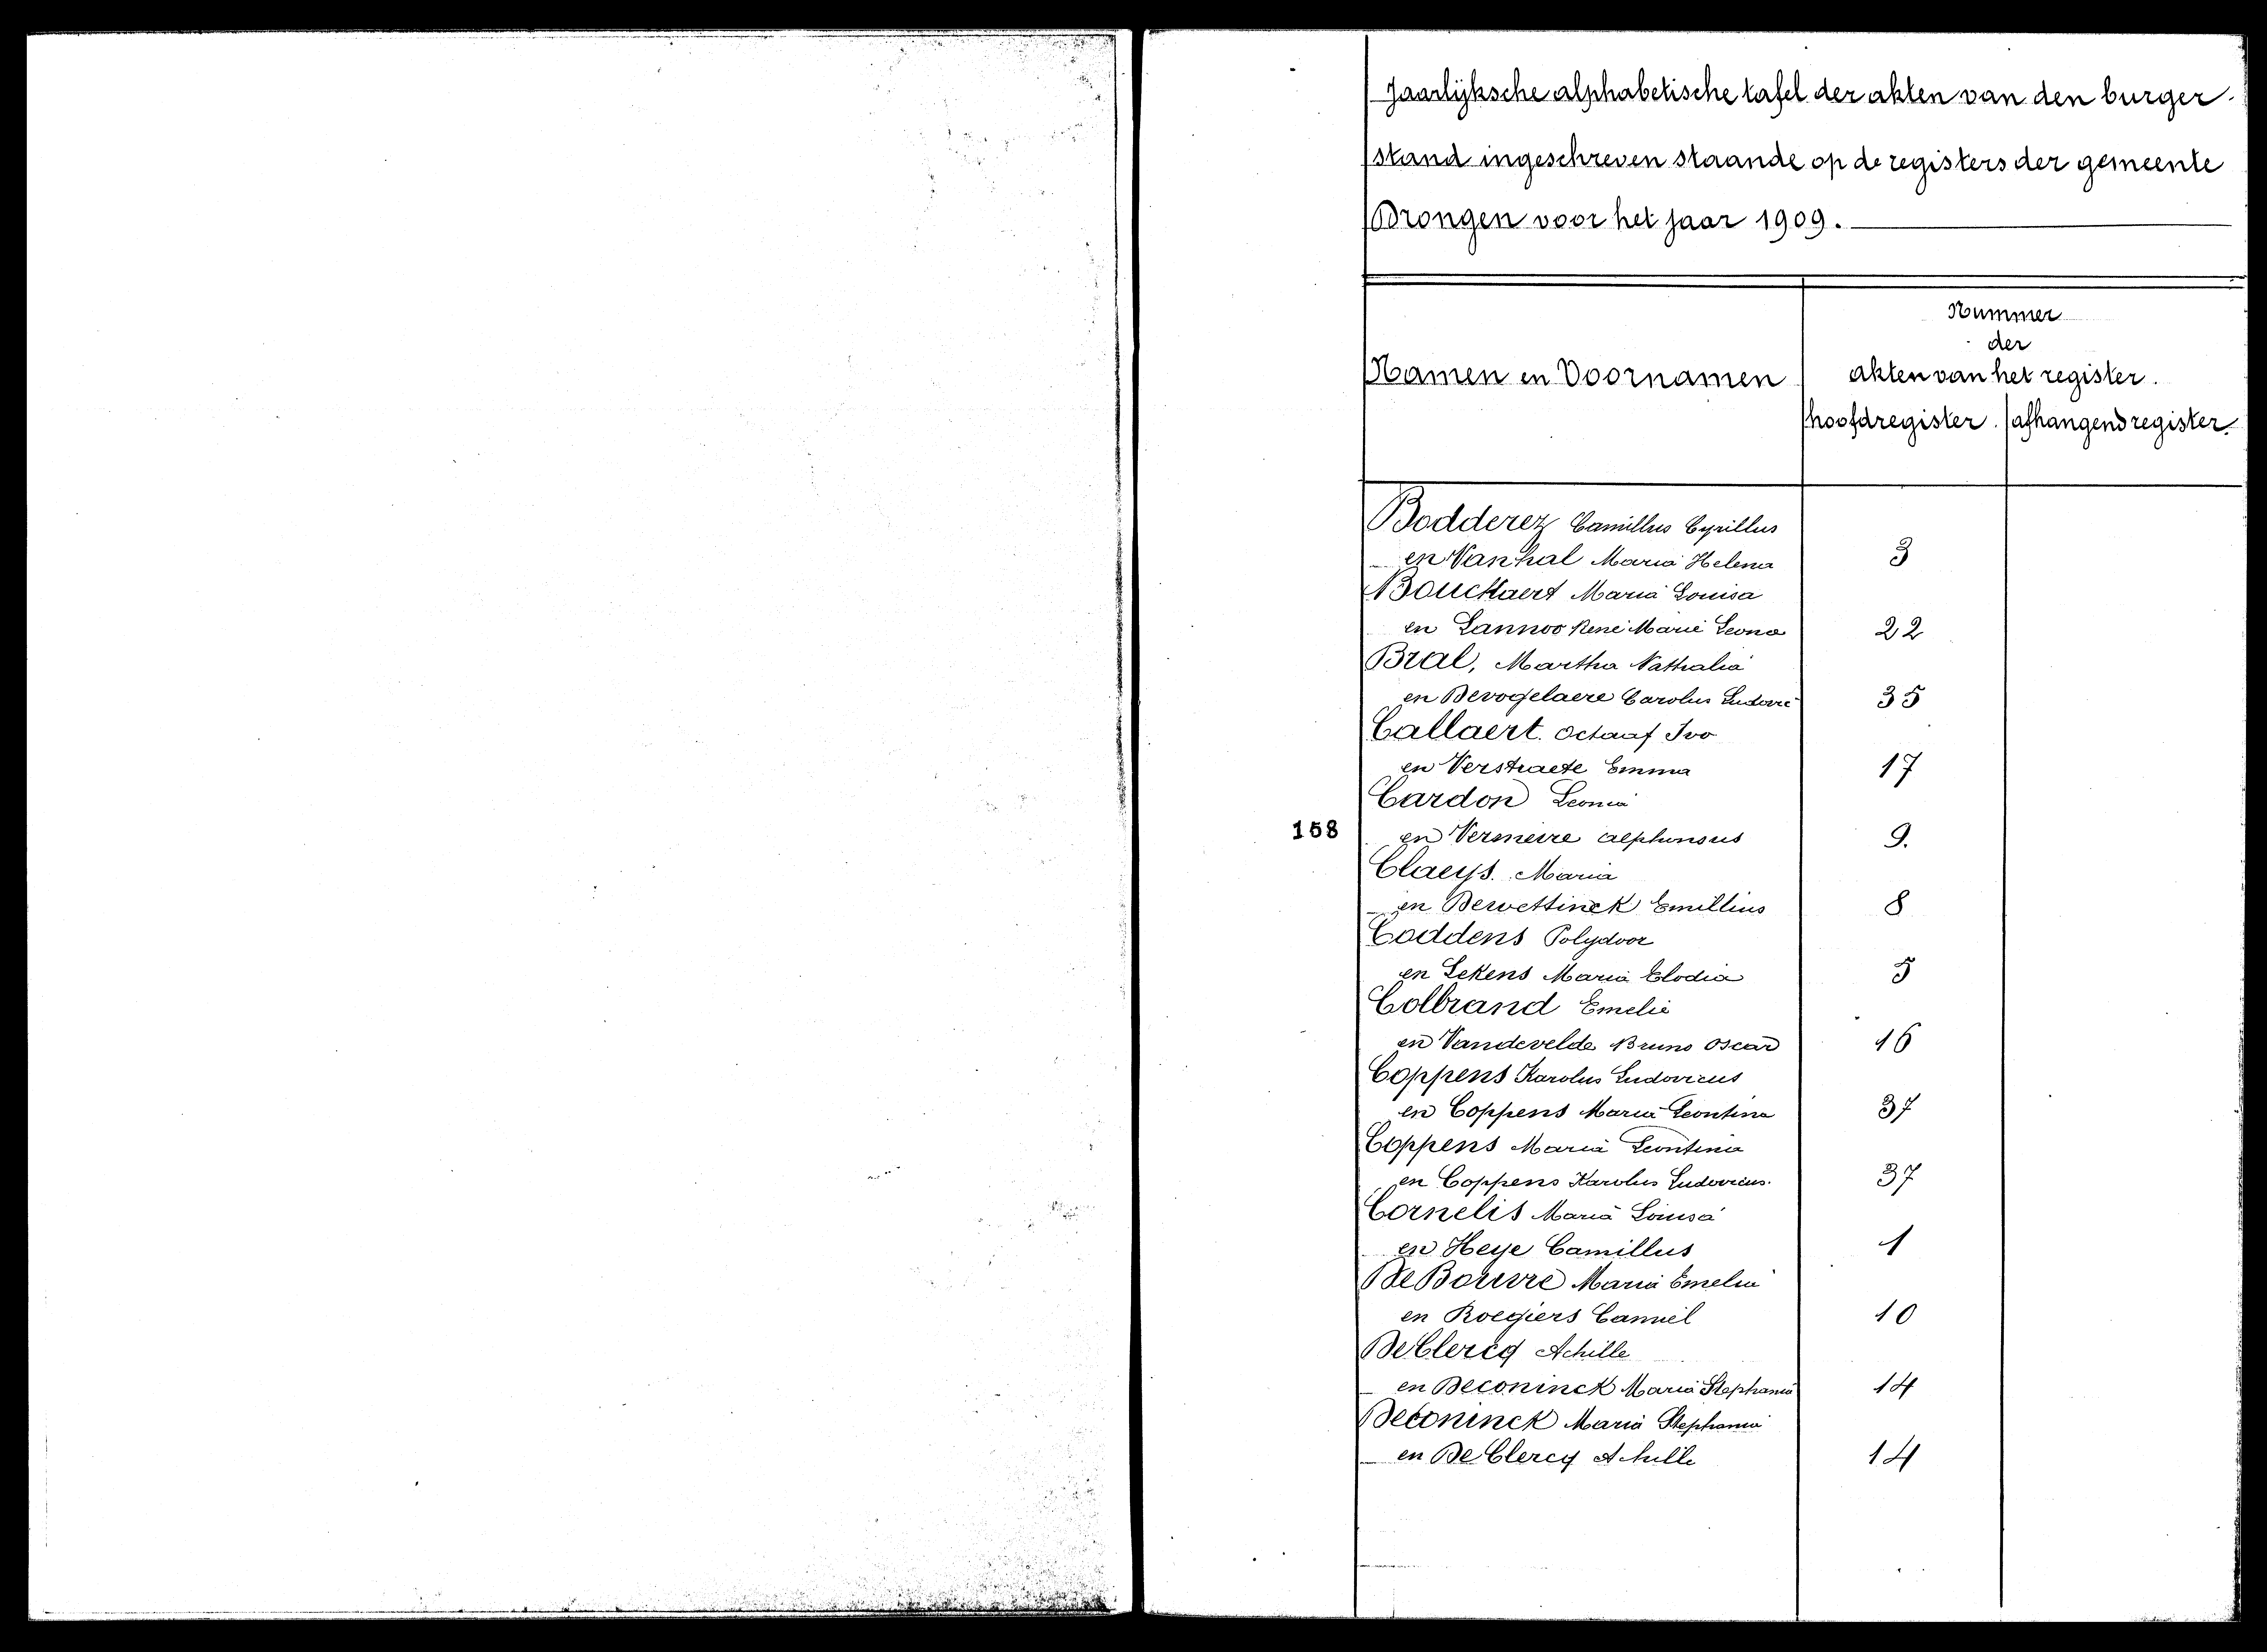 Jaarlijksche alphabetische tafel der akten van den burger-
stand ingeschreven staande op de registers der gemeente
Drongen voor het jaar 1909.
Nummer
der
Namen en Voornamen akten van het register.
hoofdregister. afhangend register.
Bodderez Camillus Cyrillus
en Vanhal Maria Helena 3
Bouckaert Maria Louisa
en Lannoo René Marie Leona 22
Bral, Martha Nathalia
en Devogelaere Carolus Ludovic 35
Callaert. Octaaf Ivo
en Verstraete Emma 17
Cardon Leonia
158 en Vermeire alphonsus 9.
Claeys. Maria
en Dewettinck Emillius 8
Coddens Polydoor
en Lekens Maria Elodia 5
Colbrand Emelie
en Vandevelde Bruno Oscar 16
Coppens Karolus Ludovicus
en Coppens Maria Leontina 37
Coppens Maria Leontina
en Coppens Karolus Ludovicus. 37
Cornelis Maria Louisa
en Heye Camillus 1
De Bouvre Maria Emelia
en Roegiers Camiel 10
De Clercq Achille
en Deconinck Maria Stephania 14
Deconinck Maria Stephania
en De Clercq Achille 14